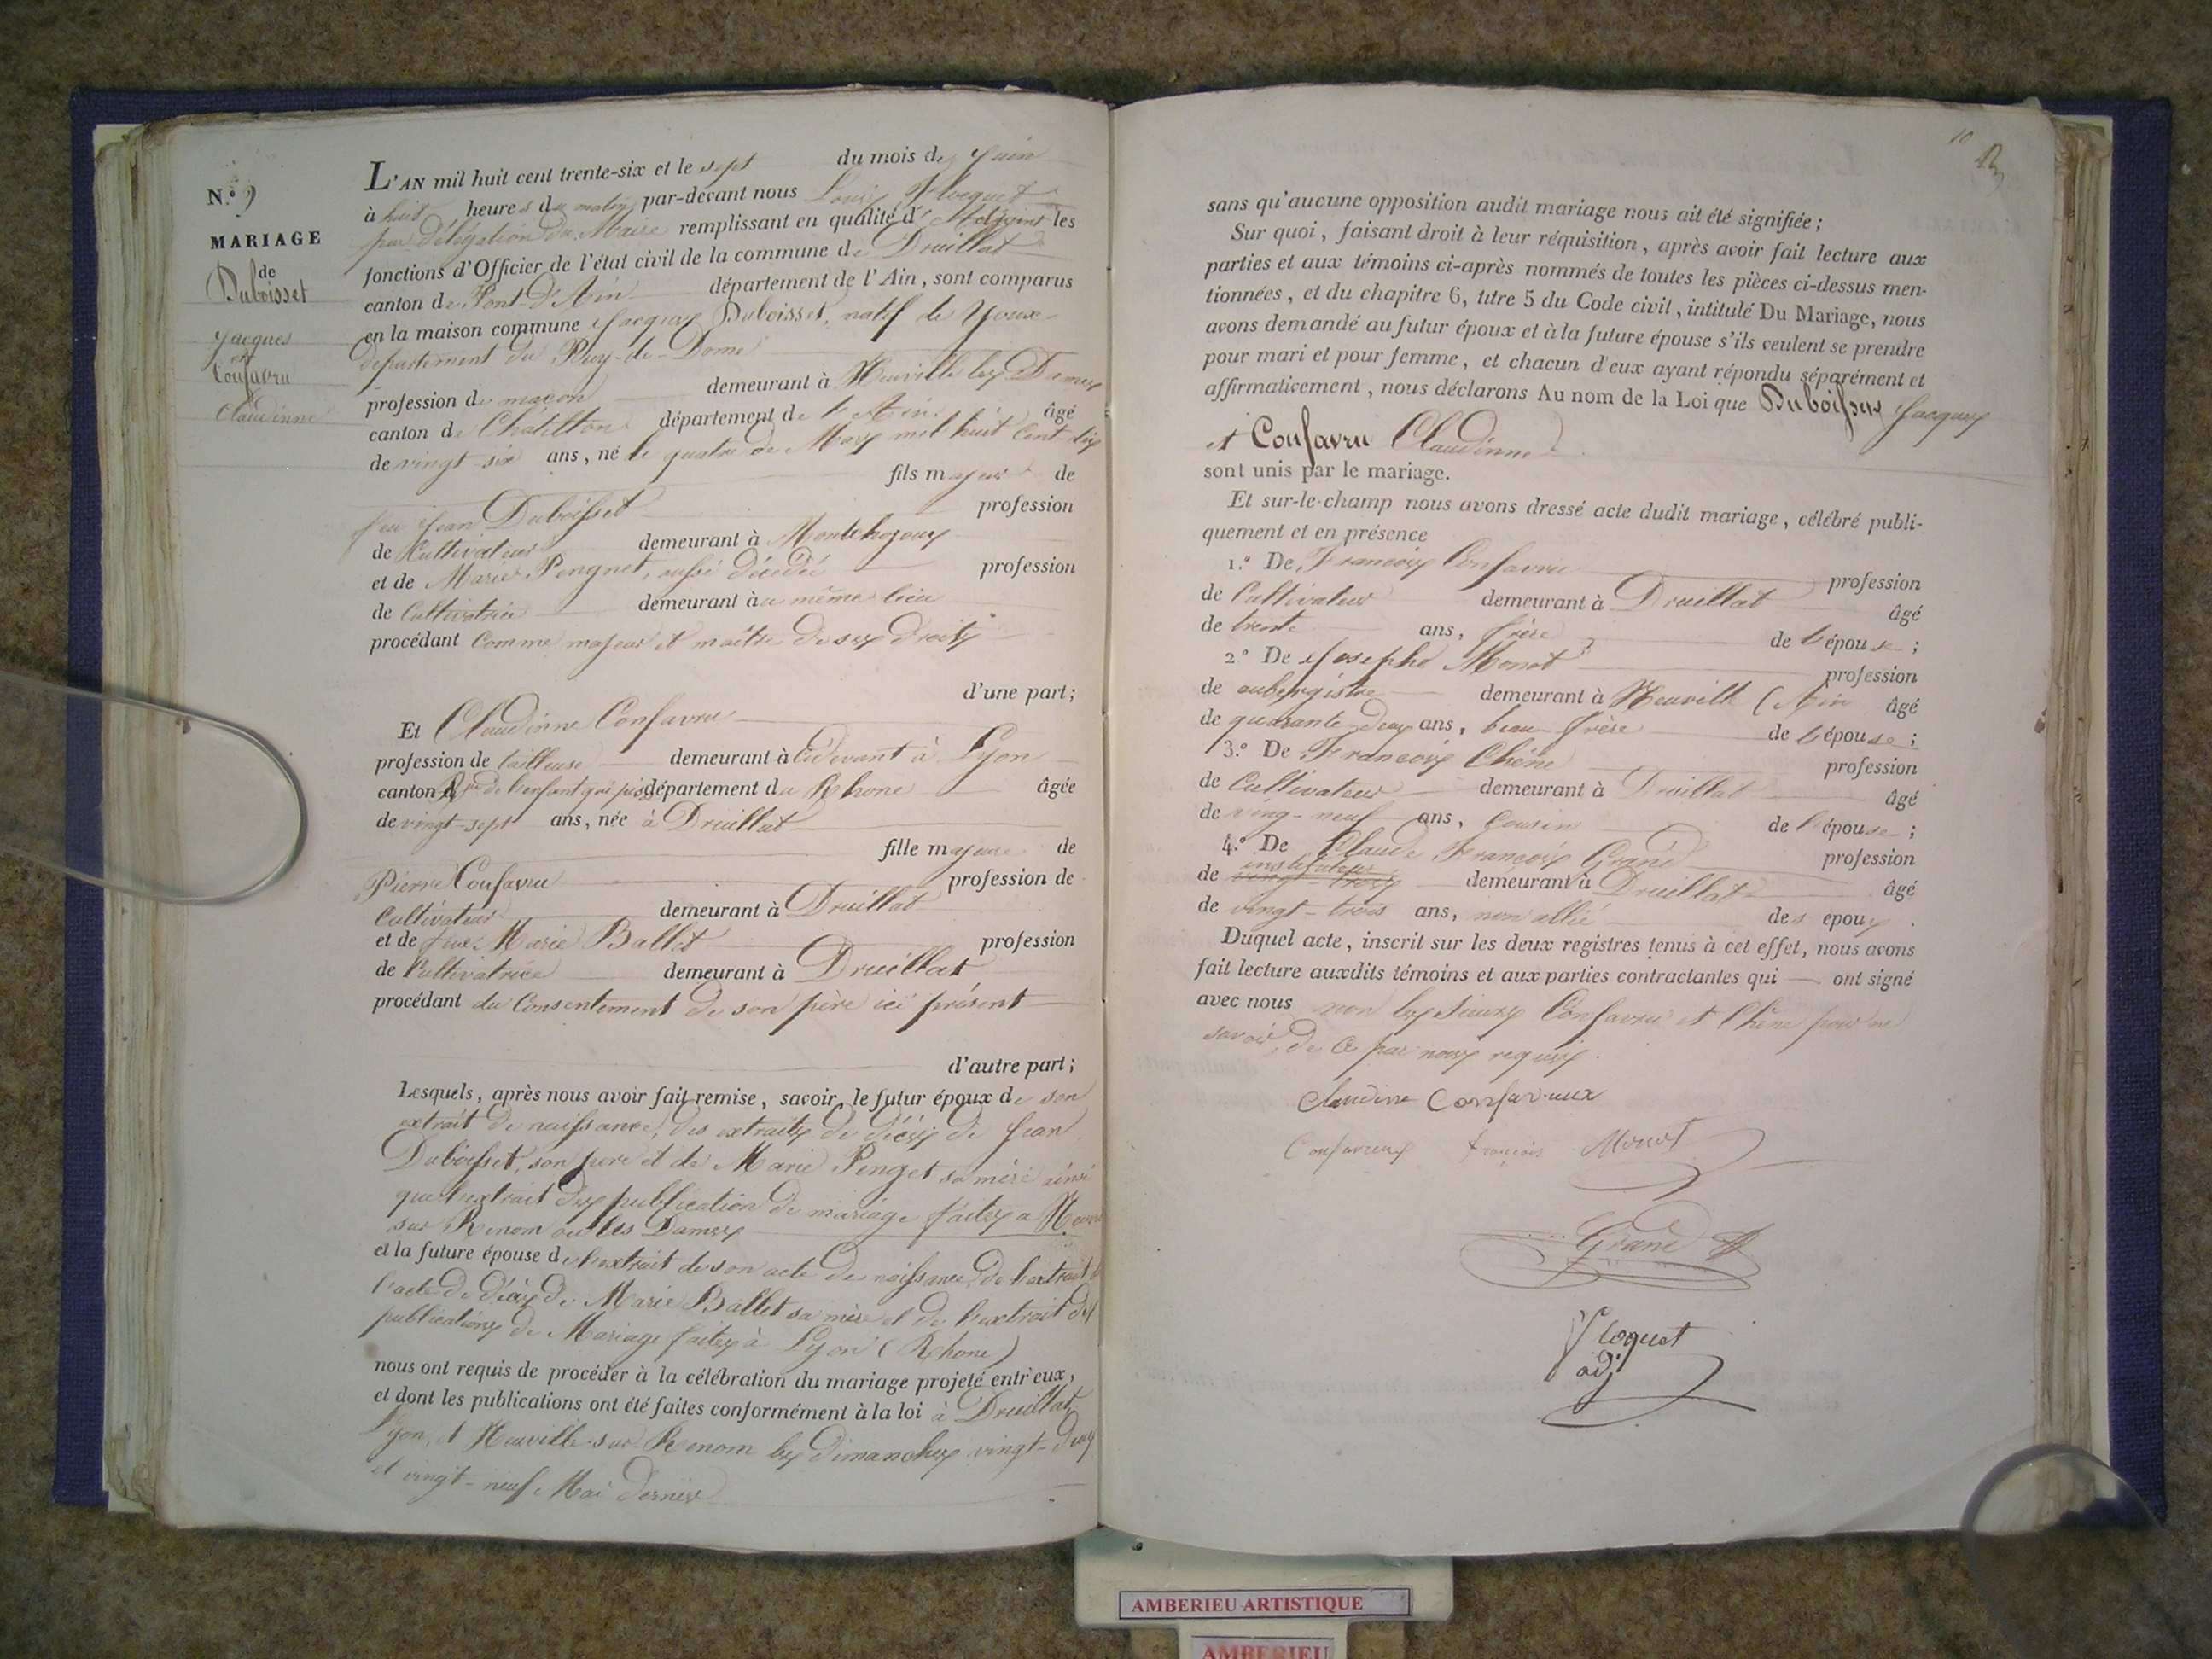 N.º 9
MARIAGE
de
Duboisset
Jacques
et
Confavru
Claudinne
L'AN mil huit cent trente-six et le sept du mois de Juin
à huit heures du matin par-devant nous Louis Floquet
par délégation du Maire remplissant en qualité d'Adjoint les
fonctions d'Officier de l'état civil de la commune de Druillat
canton de Pont D'Ain département de l'Ain, sont comparus
en la maison commune Jacques Duboisset, natif de Youx
departement du Puy-de-Dome
profession de maçon demeurant à Neuville les Dames
canton de Châtillon département de l'Ain âgé
de vingt-six ans, né le quatre de Mars mil huit cent dix
fils majeur de
feu Jean Duboisset profession
de Cultivateur demeurant à
et de Marie Pengnet, aussi décédée profession
de Cultivatrice demeurant àu même lieu
procédant comme majeur et maître de ses droits
d'une part;
Et Claudinne Confavru
profession de tailleuse demeurant à cidevant à Lyon
canton Rue de l'enfant qui pisse département du Rhone âgée
de vingt-sept ans, née à Druillat
fille majeure de
Pierre Confavru profession de
Cultivateur demeurant à Druillat
et de feue Marie Ballet profession
de Cultivatrice demeurant à Druillat
procédant du Consentement de son père ici présent
d'autre part;
Lesquels, après nous avoir fait remise, savoir, le futur époux de son
extrait de naissance, des extraits de décès de Jean
Duboisset, son pere et de Marie Penget sa mère ainsi
que l'extrait des publication de mariage faites a
sur Renom ou les Dames
et la future épouse de l'extrait de son acte de naissance, de l'extrait de
l'acte de décès de Marie Ballet sa mère et de l'extrait des
publications de Mariage faites à Lyon (Rhone)
nous ont requis de procéder à la célébration du mariage projeté entr'eux,
et dont les publications ont été faites conformément à la loi à Druillat,
Lyon, et Neuville-sur-Renom les dimanches vingt-deux
et vingt-neuf Mai dernier
10
sans qu'aucune opposition audit mariage nous ait été signifiée;
Sur quoi, faisant droit à leur réquisition, après avoir fait lecture aux
parties et aux témoins ci-après nommés de toutes les pièces ci-dessus men-
tionnées, et du chapitre 6, titre 5 du Code civil, intitulé Du Mariage, nous
avons demandé au futur époux et à la future épouse s'ils veulent se prendre
pour mari et pour femme, et chacun d'eux ayant répondu séparément et
affirmativement, nous déclarons Au nom de la Loi que Duboisset Jacques
et Confavru Claudinne
sont unis par le mariage.
Et sur-le-champ nous avons dressé acte dudit mariage, célébré publi-
quement et en présence
1.º De François Confavru profession
de Cultivateur demeurant à Druillat âgé
de trente ans, frère de l'épouse;
2º De Josephe Monot profession
de aubergiste demeurant à Neuville (Ain âgé
de quarante-deux ans, beau-frère de l'épouse;
3.º De François Chêne profession
de Cultivateur demeurant à Druillat âgé
de ving-neuf ans, cousin de l'épouse;
4.º De Claude François Grand profession
de instituteur demeurant à Druillat âgé
de vingt-trois ans, non allié des epoux.
Duquel acte, inscrit sur les deux registres tenus à cet effet, nous avons
fait lecture auxdits témoins et aux parties contractantes qui — ont signé
avec nous non les sieurs Confavru et Chêne pour ne
savoir, de ce par nous requis.
Claudine Confavreux
Confavreux François Monot
Grand
Floquet
adj
AMBERIEU ARTISTIQUE
AMBERIEU